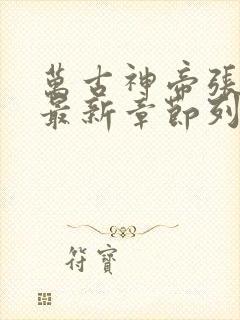 萬古神帝張
最新章節列
符寶